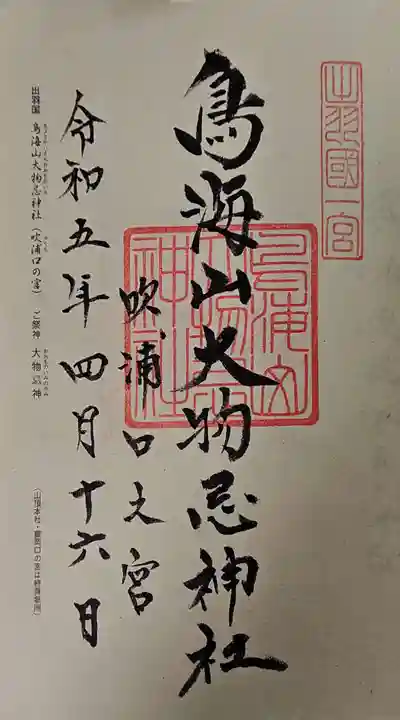 出羽國一宮
鳥海山大物忌神社
鳥海山大物忌神社
吹浦口之宮
令和五年四月十六日
出羽國 鳥海山大物忌神社(吹浦口の宮) ご祭神 大物忌神